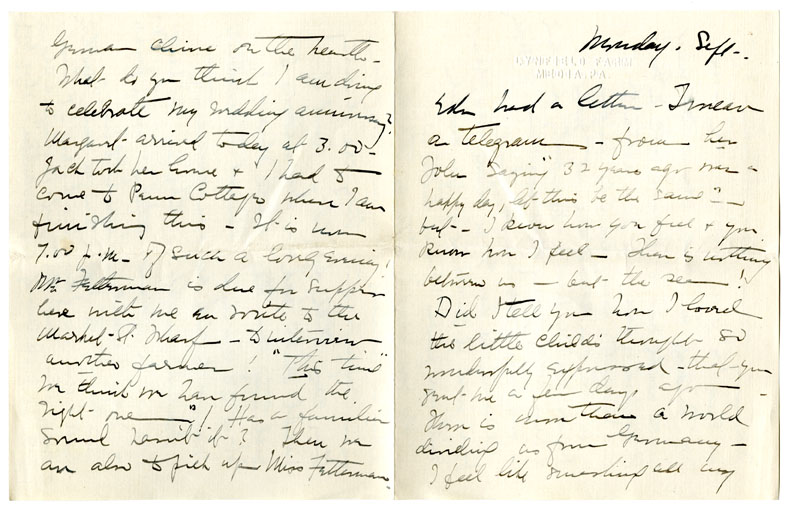 Monday. Sept-.
LYNDFIELD FARM
MEDIA, PA.
Edw had a letter - I mean
a telegram - from her
John saying "32 years ago was a
happy day, let this be the same" -
but - I know how you feel & you
know how I feel - There is nothing
between us - but the sea!
Did I tell you how I loved
the little child's thought so
wonderfully expressed - that you
sent me a few days ago -
There is more than a world
dividing us from Germany -
I feel like smashing all my
German china on the hearth -
What do you think I am doing
to celebrate my wedding anniversary?
Margaret arrived today at 3.00 -
Jack took her home & I had to
come to Penn Cottage where I am
finishing this - It is now
7.00 p.m. of such a long evening!
Mr Fetterman is due for supper
here with me en route to the
Market St. Wharf - to interview
another farmer! "This time"
we think we have found the
right one"! Has a familiar
sound hasn't it? Then we
are also to pick up Miss Fetterman